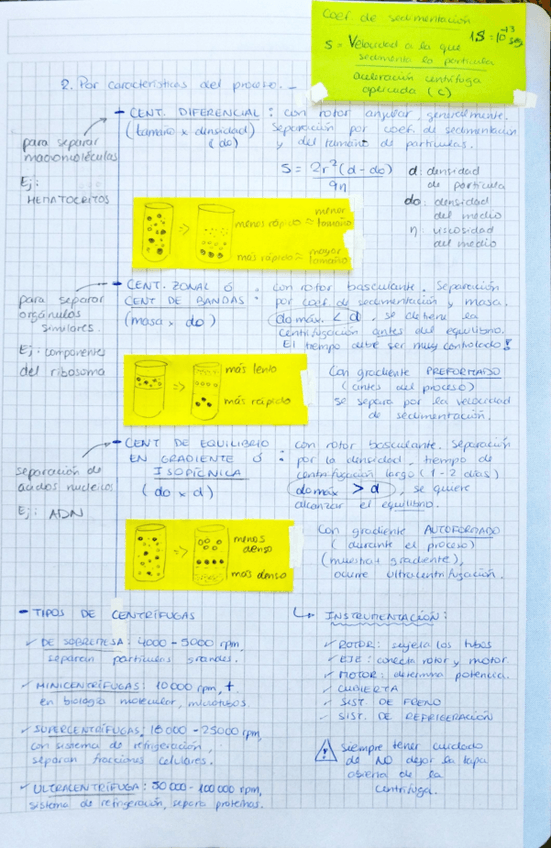 Coef. de sedimentación
1S = 10⁻¹³ seg
S = Velocidad a la que
sedimenta la partícula
aceleración centrífuga
aplicada (C)
2. Por características del proceso. -
para separar
macromoléculas
Ej:
HEMATOCRITOS
- CENT. DIFERENCIAL : con rotor angular generalmente.
(tamaño x densidad) Separación por coef. de sedimentación
(do) y del tamaño de partículas.
S = 2r²(d - do)
9η
d: densidad
de partícula
do: densidad
del medio
η: viscosidad
del medio
menos rápido = menor
tamaño
más rápido = mayor
tamaño
para separar
orgánulos
similares.
Ej: componentes
del ribosoma
- CENT. ZONAL Ó : con rotor basculante. Separación
CENT DE BANDAS por coef. de sedimentación y masa.
(masa x do) do máx. < d, se detiene la
centrifugación antes del equilibrio.
El tiempo debe ser muy controlado!
más lento
más rápido
Con gradiente PREFORMADO
(antes del proceso)
se separa por la velocidad
de sedimentación.
separación de
ácidos nucleicos
Ej: ADN
- CENT DE EQUILIBRIO : con rotor basculante. Separación
EN GRADIENTE Ó por la densidad, tiempo de
ISOPÍCNICA centrifugación largo (1 - 2 días)
(do x d) do máx > d, se quiere
alcanzar el equilibrio.
menos
denso
más denso
Con gradiente AUTOFORMADO
(durante el proceso)
(muestra + gradiente),
ocurre ultracentrifugación.
- TIPOS DE CENTRÍFUGAS
✓ DE SOBREMESA: 4000 - 5000 rpm,
separan partículas grandes.
✓ MINICENTRÍFUGAS: 10000 rpm, +
en biología molecular, microtubos.
✓ SUPERCENTRÍFUGAS: 18000 - 25000 rpm,
con sistema de refrigeración,
separan fracciones celulares.
✓ ULTRACENTRÍFUGA: 50000 - 100000 rpm,
sistema de refrigeración, separa proteínas.
↳ INSTRUMENTACIÓN:
✓ ROTOR: sujeta los tubos
✓ EJE: conecta rotor y motor.
✓ MOTOR: determina potencia.
✓ CUBIERTA
✓ SIST. DE FRENO
✓ SIST. DE REFRIGERACIÓN
⚠ Siempre tener cuidado
de NO dejar la tapa
abierta de la
centrífuga.